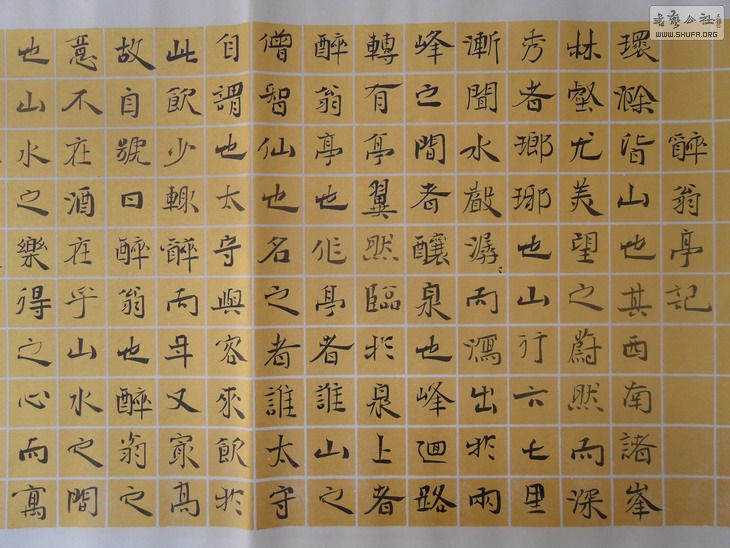 醉翁亭記
環滁皆山也其西南諸峯
林壑尤美望之蔚然而深
秀者瑯琊也山行六七里
漸聞水聲潺〻而瀉出於兩
峰之間者釀泉也峰迴路
轉有亭翼然臨於泉上者
醉翁亭也作亭者誰山之
僧智仙也名之者誰太守
自謂也太守與客來飲於
此飲少輒醉而年又最高
故自號曰醉翁也醉翁之
意不在酒在乎山水之間
也山水之樂得之心而寓
书艺公社
WWW.SHUFA.ORG